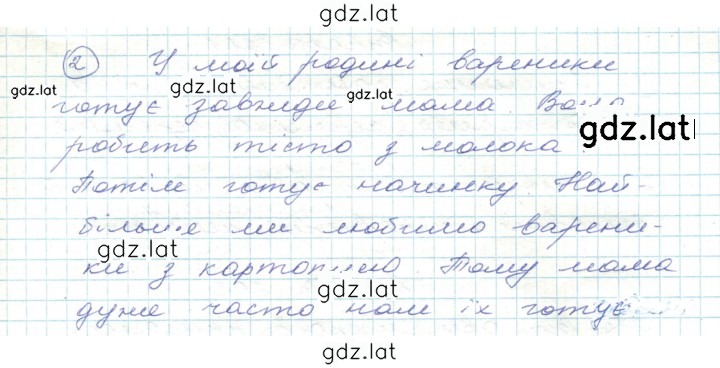 gdz.lat
2 У моїй родині вареники
gdz.lat gdz.lat gdz.lat
готує завжди мама. Вона
gdz.lat
робить тісто з молока
Потім готує начинку. Най-
більше ми любимо варени-
gdz.lat
ки з картоплею. Тому мама
gdz.lat
дуже часто нам їх готує
gdz.lat